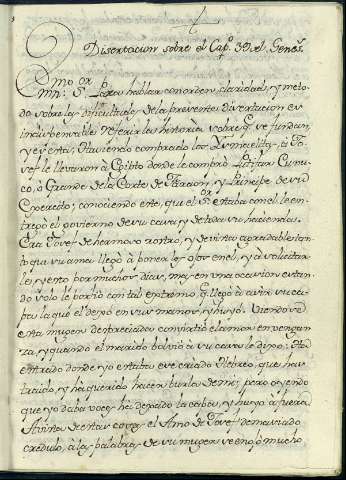 Disertacion sobre el Cap.º 39. del Genes.
Para hablar con orden, claridad, y meto-
do sobre las dificultades de la presente disertacion es
indispensable referir la historia sobre q.e se fundan,
y es esta: Haviendo comprado los Ismaelitas, a Jo-
sef le llevaron à Egipto donde le comprò Putifar Eunu-
co, ò Grande de la Corte de Faraon, y Principe de su
Exercito; conociendo este, que el S.or estaba con el le en-
tregò el govierno de su casa, y de toda su hacienda.
Era Josef de hermoso rostro, y de vista agradable; tan-
to que su ama llegò à poner los ojos en el, y à solicitar
le, y esto por muchos dias, mas en una ocasion estan-
do solo le porfiò con tal extremo, q.e llegò à asir su ca-
pa la que el dejò en sus manos, y huyò. Viendose
esta muger despreciada convirtiò el amor en vengan-
za, y quando el marido bolviò à su casa le dijo: Ha
entrado donde yo estaba ese criado Hebreo, que has
traido, y ha querido hacer burla de mi; pero oyendo
que yo daba voces ha dexado la capa, y huyò à fuera.
A vista de estas cosas el Amo de Josef demasiado
credulo, à las palabras de su muger se enojò mucho